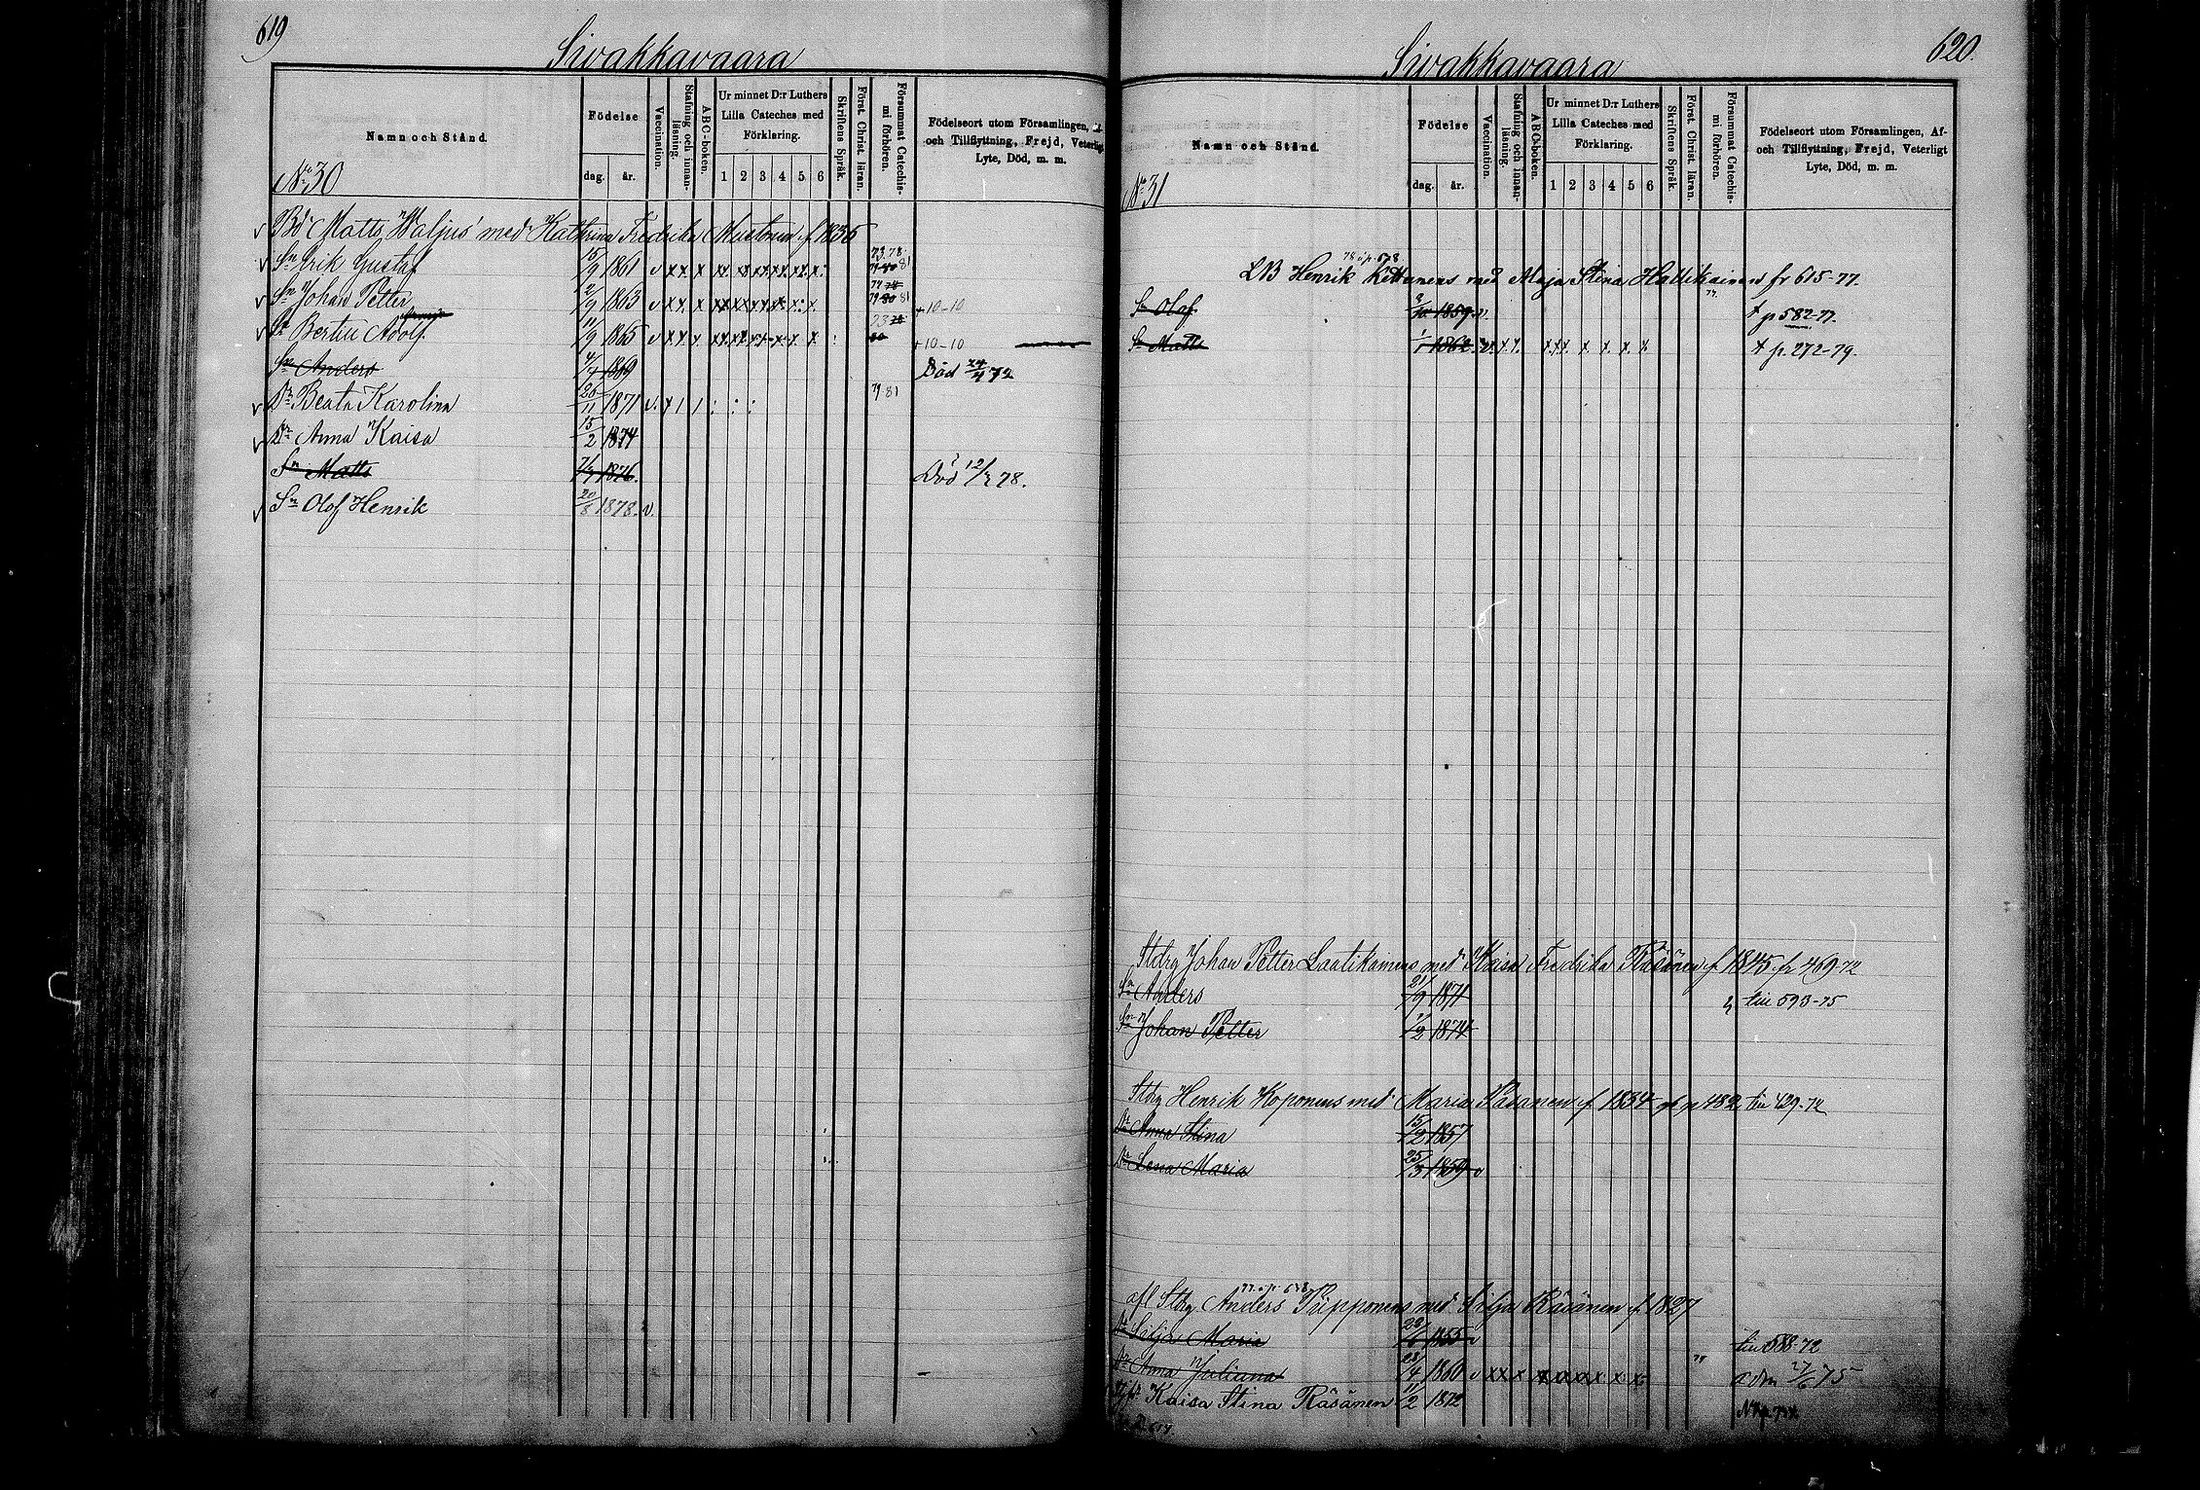 619
Sivakkavaara
Namn och Stånd.
Födelse
dag. år.
Vaccination.
Stafning och innan-läsning.
ABC-boken.
Ur minnet D:r Luthers Lilla Cateches med Förklaring.
1 2 3 4 5 6
Skriftens Språk.
Först. Christ. läran.
Försummat Catechis-mi förhören.
Födelseort utom Församlingen, Af- och Tillflyttning, Frejd, Veterligt Lyte, Död, m. m.
No 30
Bd Matts Waljus med Kathrina Fredrika f. 1836
Sn Erik Gustaf 15/9 1861 v x x x 73. 78.
Sn Johan Petter 2/9 1863 v x x x +10-10
Sn Bertil Adolf 11/9 1865 v x x x +10-10
Sn Anders 4/4 1869 Död 24/4 72
Dr Beata Karolina 26/11 1871 v. x 79-81
Dr Anna Kaisa 15/2 1874
Sn Matts 7/7 1876. Död 12/2 78.
Sn Olof Henrik 20/8 1878. v.
620.
Sivakkavaara
Namn och Stånd.
Födelse
dag. år.
Vaccination.
Stafning och innan-läsning.
ABC-boken.
Ur minnet D:r Luthers Lilla Cateches med Förklaring.
1 2 3 4 5 6
Skriftens Språk.
Först. Christ. läran.
Försummat Catechis-mi förhören.
Födelseort utom Församlingen, Af- och Tillflyttning, Frejd, Veterligt Lyte, Död, m. m.
No 31
LB Henrik med Maja Stina Hallikainen fr 615-77.
Sn Olof 1859 v. + p 582-77.
Sn Matts 1862 v. x x. x x x x. x. x. x. + p. 272-79.
Stdrg Johan Petter Laatikainens med Kaisa Fredrika Räsänen f 1845 fr 469-72
Sn Anders 21/9 1871 till 593-75
Sn Johan Petter 1/2 1874
Stdrg Henrik Koponens med Maria Räsänen f. 1834 p 482 till 429-72
Dr Anna Stina 15/2 1857
Dr Lena Maria 25/3 1859 v
afl Stdrg Anders Piipponens med Silja Räsänen f. 1827
Dr Silja Maria 1855 v till 588-72
Dr Anna Juliana 28/4 1860 v x x x x x x x x x 27/6 75
Kaisa Stina Räsänen 11/2 1872